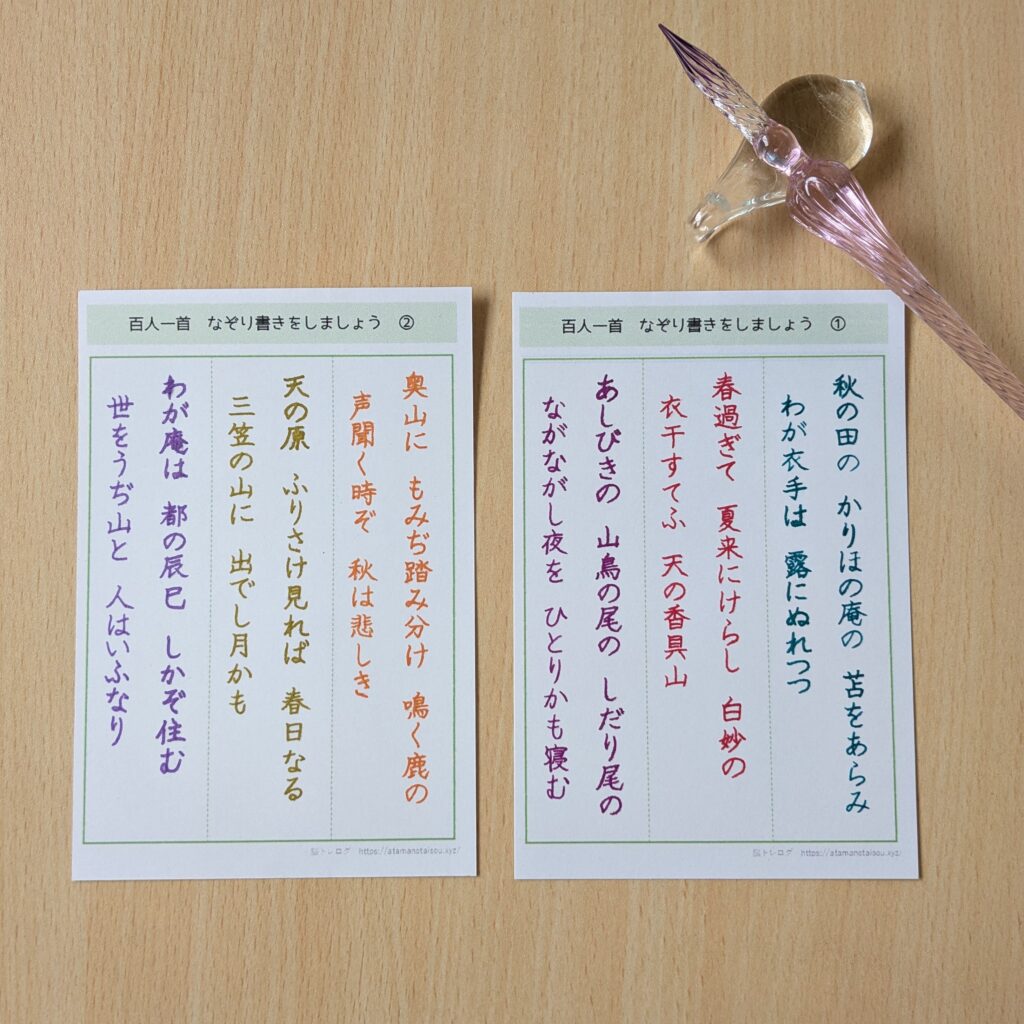 百人一首 なぞり書きをしましょう ①
秋の田の かりほの庵の 苫をあらみ
わが衣手は 露にぬれつつ
春過ぎて 夏来にけらし 白妙の
衣干すてふ 天の香具山
あしびきの 山鳥の尾の しだり尾の
ながながし夜を ひとりかも寝む
脳トレログ https://atamanotaisou.xyz/
百人一首 なぞり書きをしましょう ②
奥山に もみぢ踏み分け 鳴く鹿の
声聞く時ぞ 秋は悲しき
天の原 ふりさけ見れば 春日なる
三笠の山に 出でし月かも
わが庵は 都の辰巳 しかぞ住む
世をうぢ山と 人はいふなり
脳トレログ https://atamanotaisou.xyz/